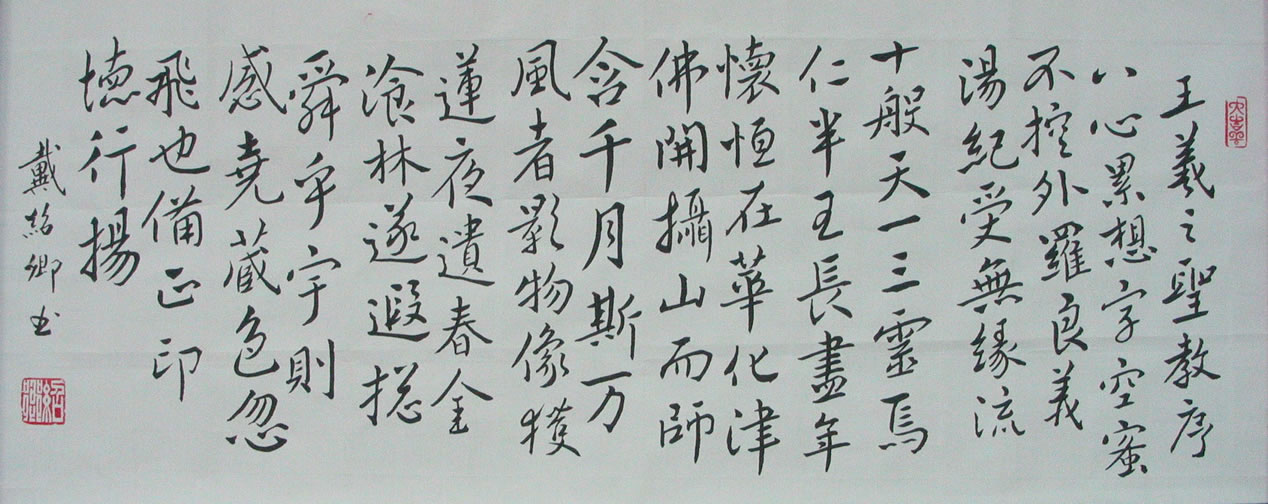 王羲之聖教序
八心累想字空蜜
不控外羅良義
湯紀受無緣流
十般天一三靈焉
仁半王長盡年
懷恒在華化津
佛開攝山而師
含千月斯万
風者影物像獲
蓮夜遺春金
飡林遂遐揔
舜乎宇則
感堯蔵色忽
飛也備正印
德行揚
戴紹卿书